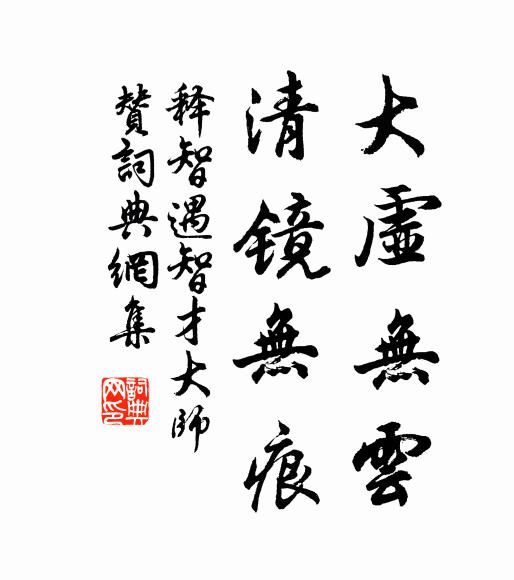 大虛無雲
清镜無痕
释智遇智才大師
贊詞典網集
詞典网印